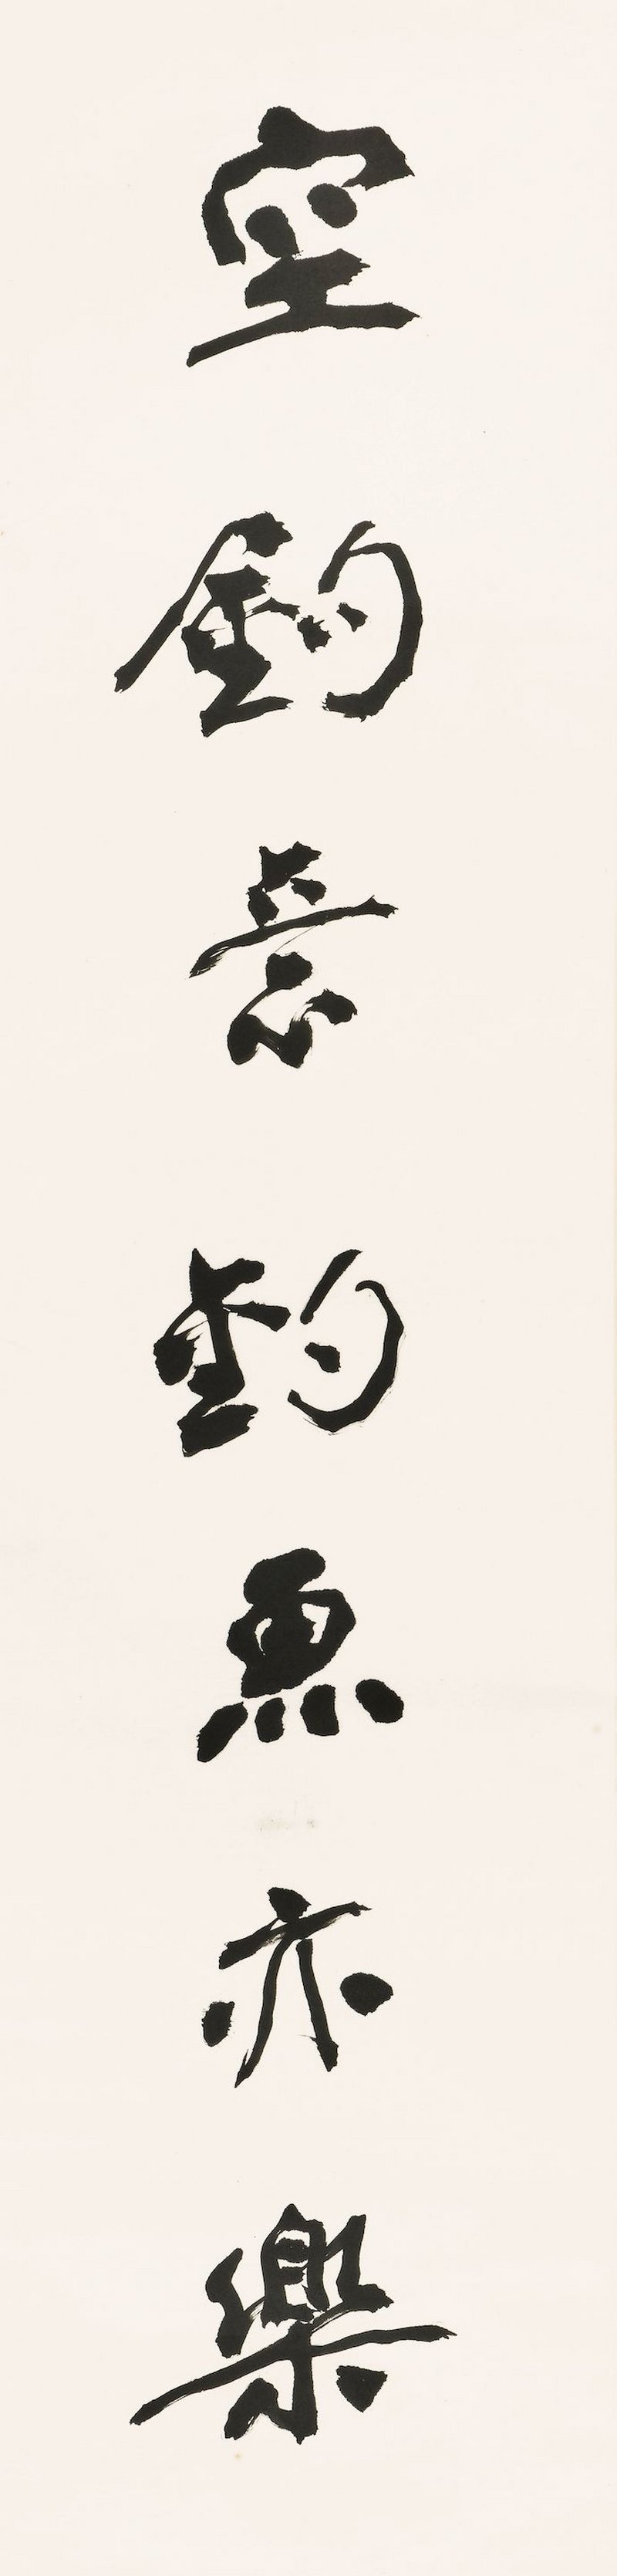 空鈎意釣魚亦樂